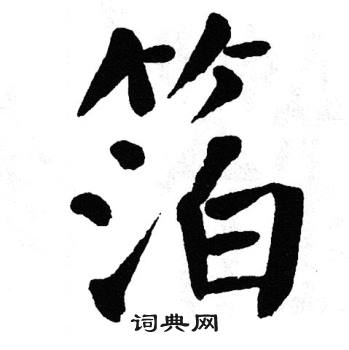 箔
词典网